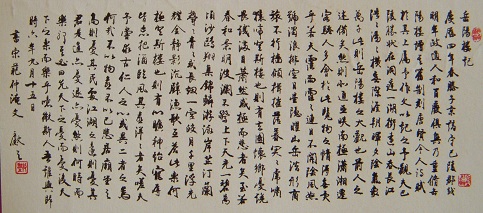 岳陽樓記
慶曆四年春滕子京謫守巴陵郡越
明年政通人和百廢俱興乃重修岳
陽樓增其舊制刻唐賢今人詩賦
於其上屬予作文以記之予觀夫巴
陵勝狀在洞庭一湖銜遠山吞長江
浩浩湯湯橫無際涯朝暉夕陰氣象
萬千此則岳陽樓之大觀也前人之
述備矣然則北通巫峽南極瀟湘遷
客騷人多會於此覽物之情得無異
乎若夫霪雨霏霏連月不開陰風怒
號濁浪排空日星隱曜山岳潛形商
旅不行檣傾楫摧薄暮冥冥虎嘯
猿啼登斯樓也則有去國懷鄉憂讒
畏譏滿目蕭然感極而悲者矣至若
春和景明波瀾不驚上下天光一碧萬
頃沙鷗翔集錦鱗游泳岸芷汀蘭
郁郁青青而或長煙一空皓月千里浮光
耀金靜影沉璧漁歌互答此樂何
極登斯樓也則有心曠神怡寵辱
皆忘把酒臨風其喜洋洋者矣嗟夫
予嘗求古仁人之心或異二者之為
何哉不以物喜不以己悲居廟堂之
高則憂其民處江湖之遠則憂其
君是進亦憂退亦憂然則何時而
樂耶其必曰先天下之憂而憂後天
下之樂而樂乎噫微斯人吾誰與歸
時六年九月十五日
書宋范仲淹文